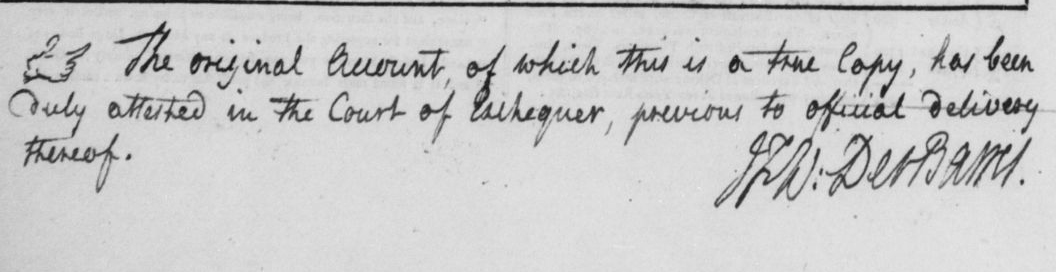 ☞ The original Account, of which this is a true Copy, has been
duly attested in the Court of Exchequer, previous to official delivery
thereof.
JFW: DesBarres.